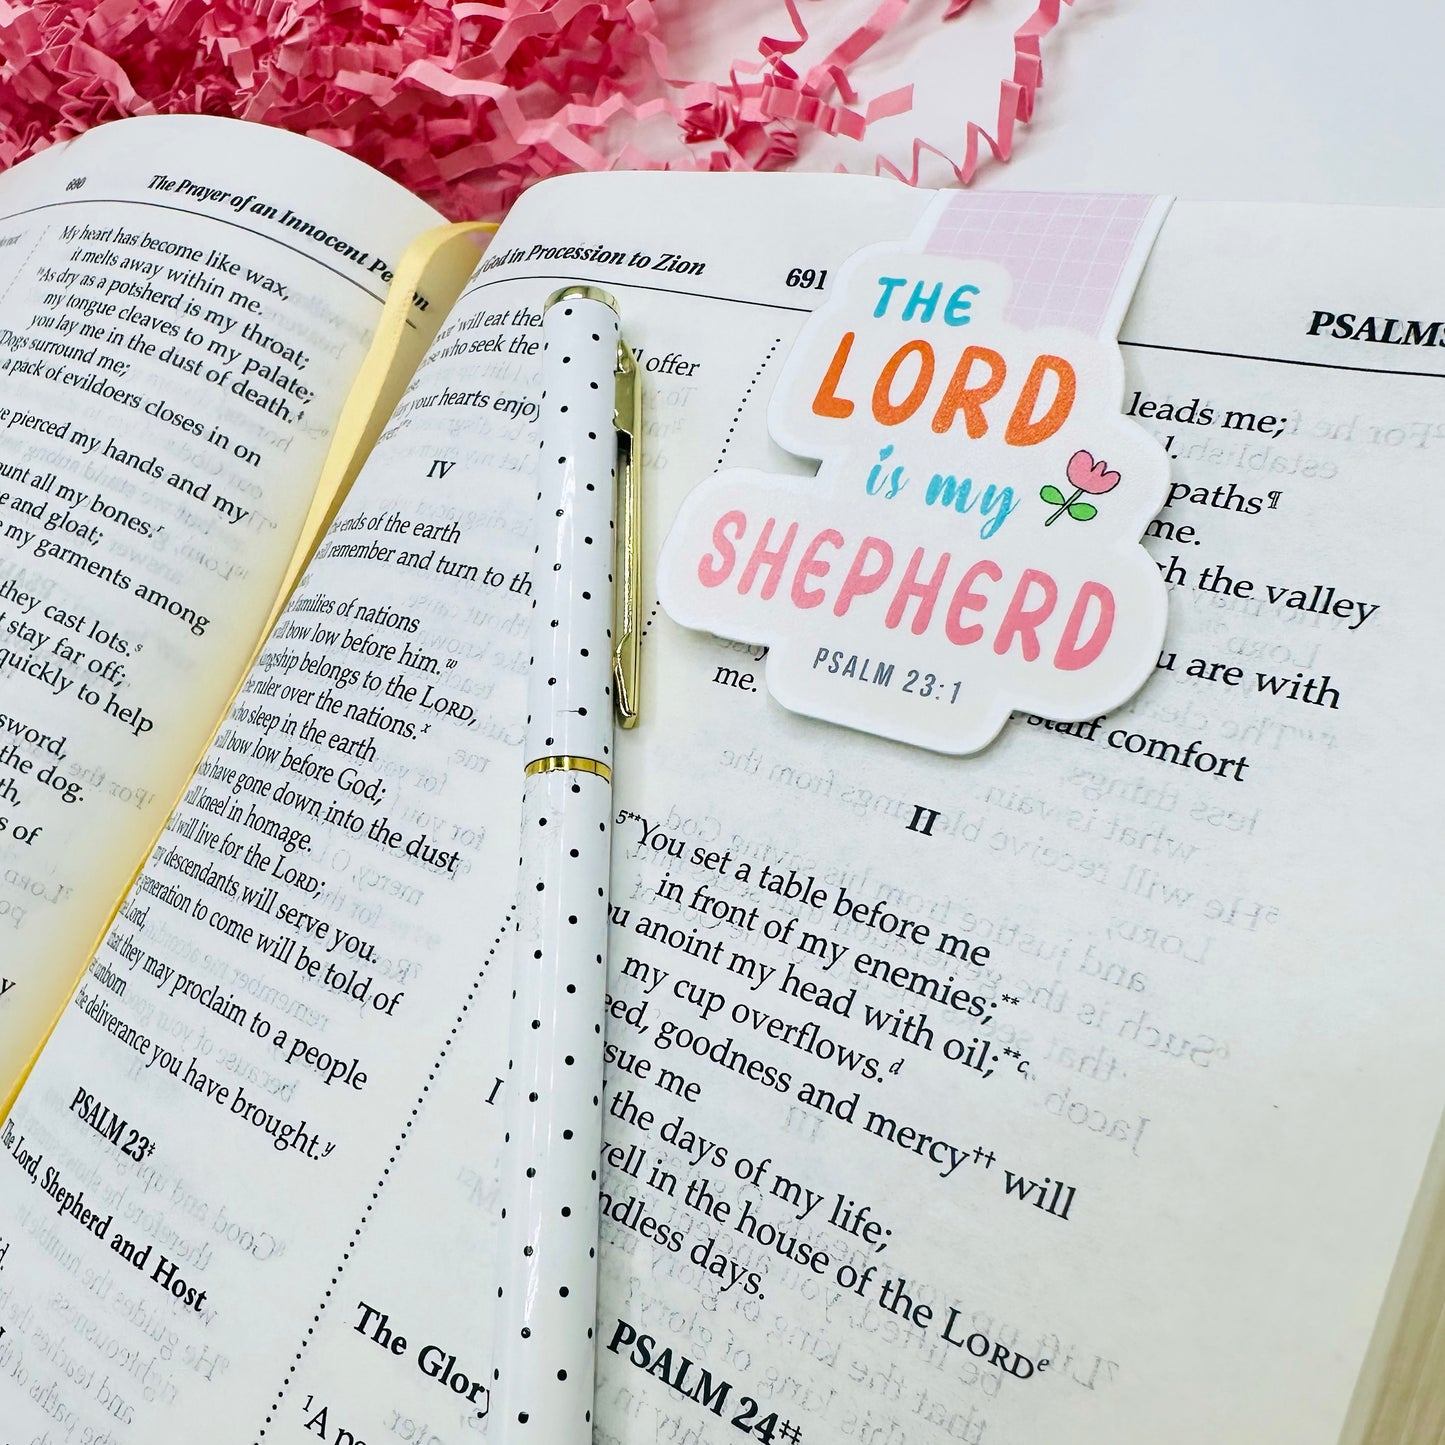 690
The Prayer of an Innocent Pe
My heart has become like wax,
it melts away within me.
As dry as a potsherd is my throat;
my tongue cleaves to my palate;
you lay me in the dust of death.
Dogs surround me;
a pack of evildoers closes in on
pierced my hands and my
all my bones.r
and gloat;
my garments among
they cast lots.s
stay far off;
quickly to help
sword,
the dog.
of
of God in Procession to Zion
691
PSALMS
will eat
offer
who seek the
your hearts enjoy
IV
ends of the earth
remember and turn to
families of nations
bow low before him.w
belongs to the LORD,
ruler over the nations.x
who sleep in the earth
bow low before God;
have gone down into the dust
kneel in homage.
will live for the LORD;
my descendants will serve you.
generation to come will be told of
the Lord,
that they may proclaim to a people
unborn
the deliverance you have brought.y
PSALM 23‡
The Lord, Shepherd and Host
I
THE
LORD
is my
SHEPHERD
PSALM 23:1
leads me;
paths¶
me.
the valley
are with
me.
staff comfort
II
5**You set a table before me
in front of my enemies;**
anoint my head with oil;**c
my cup overflows.d
goodness and mercy†† will
me
the days of my life;
in the house of the LORDe
days.
PSALM 24‡‡
The Glory
1A